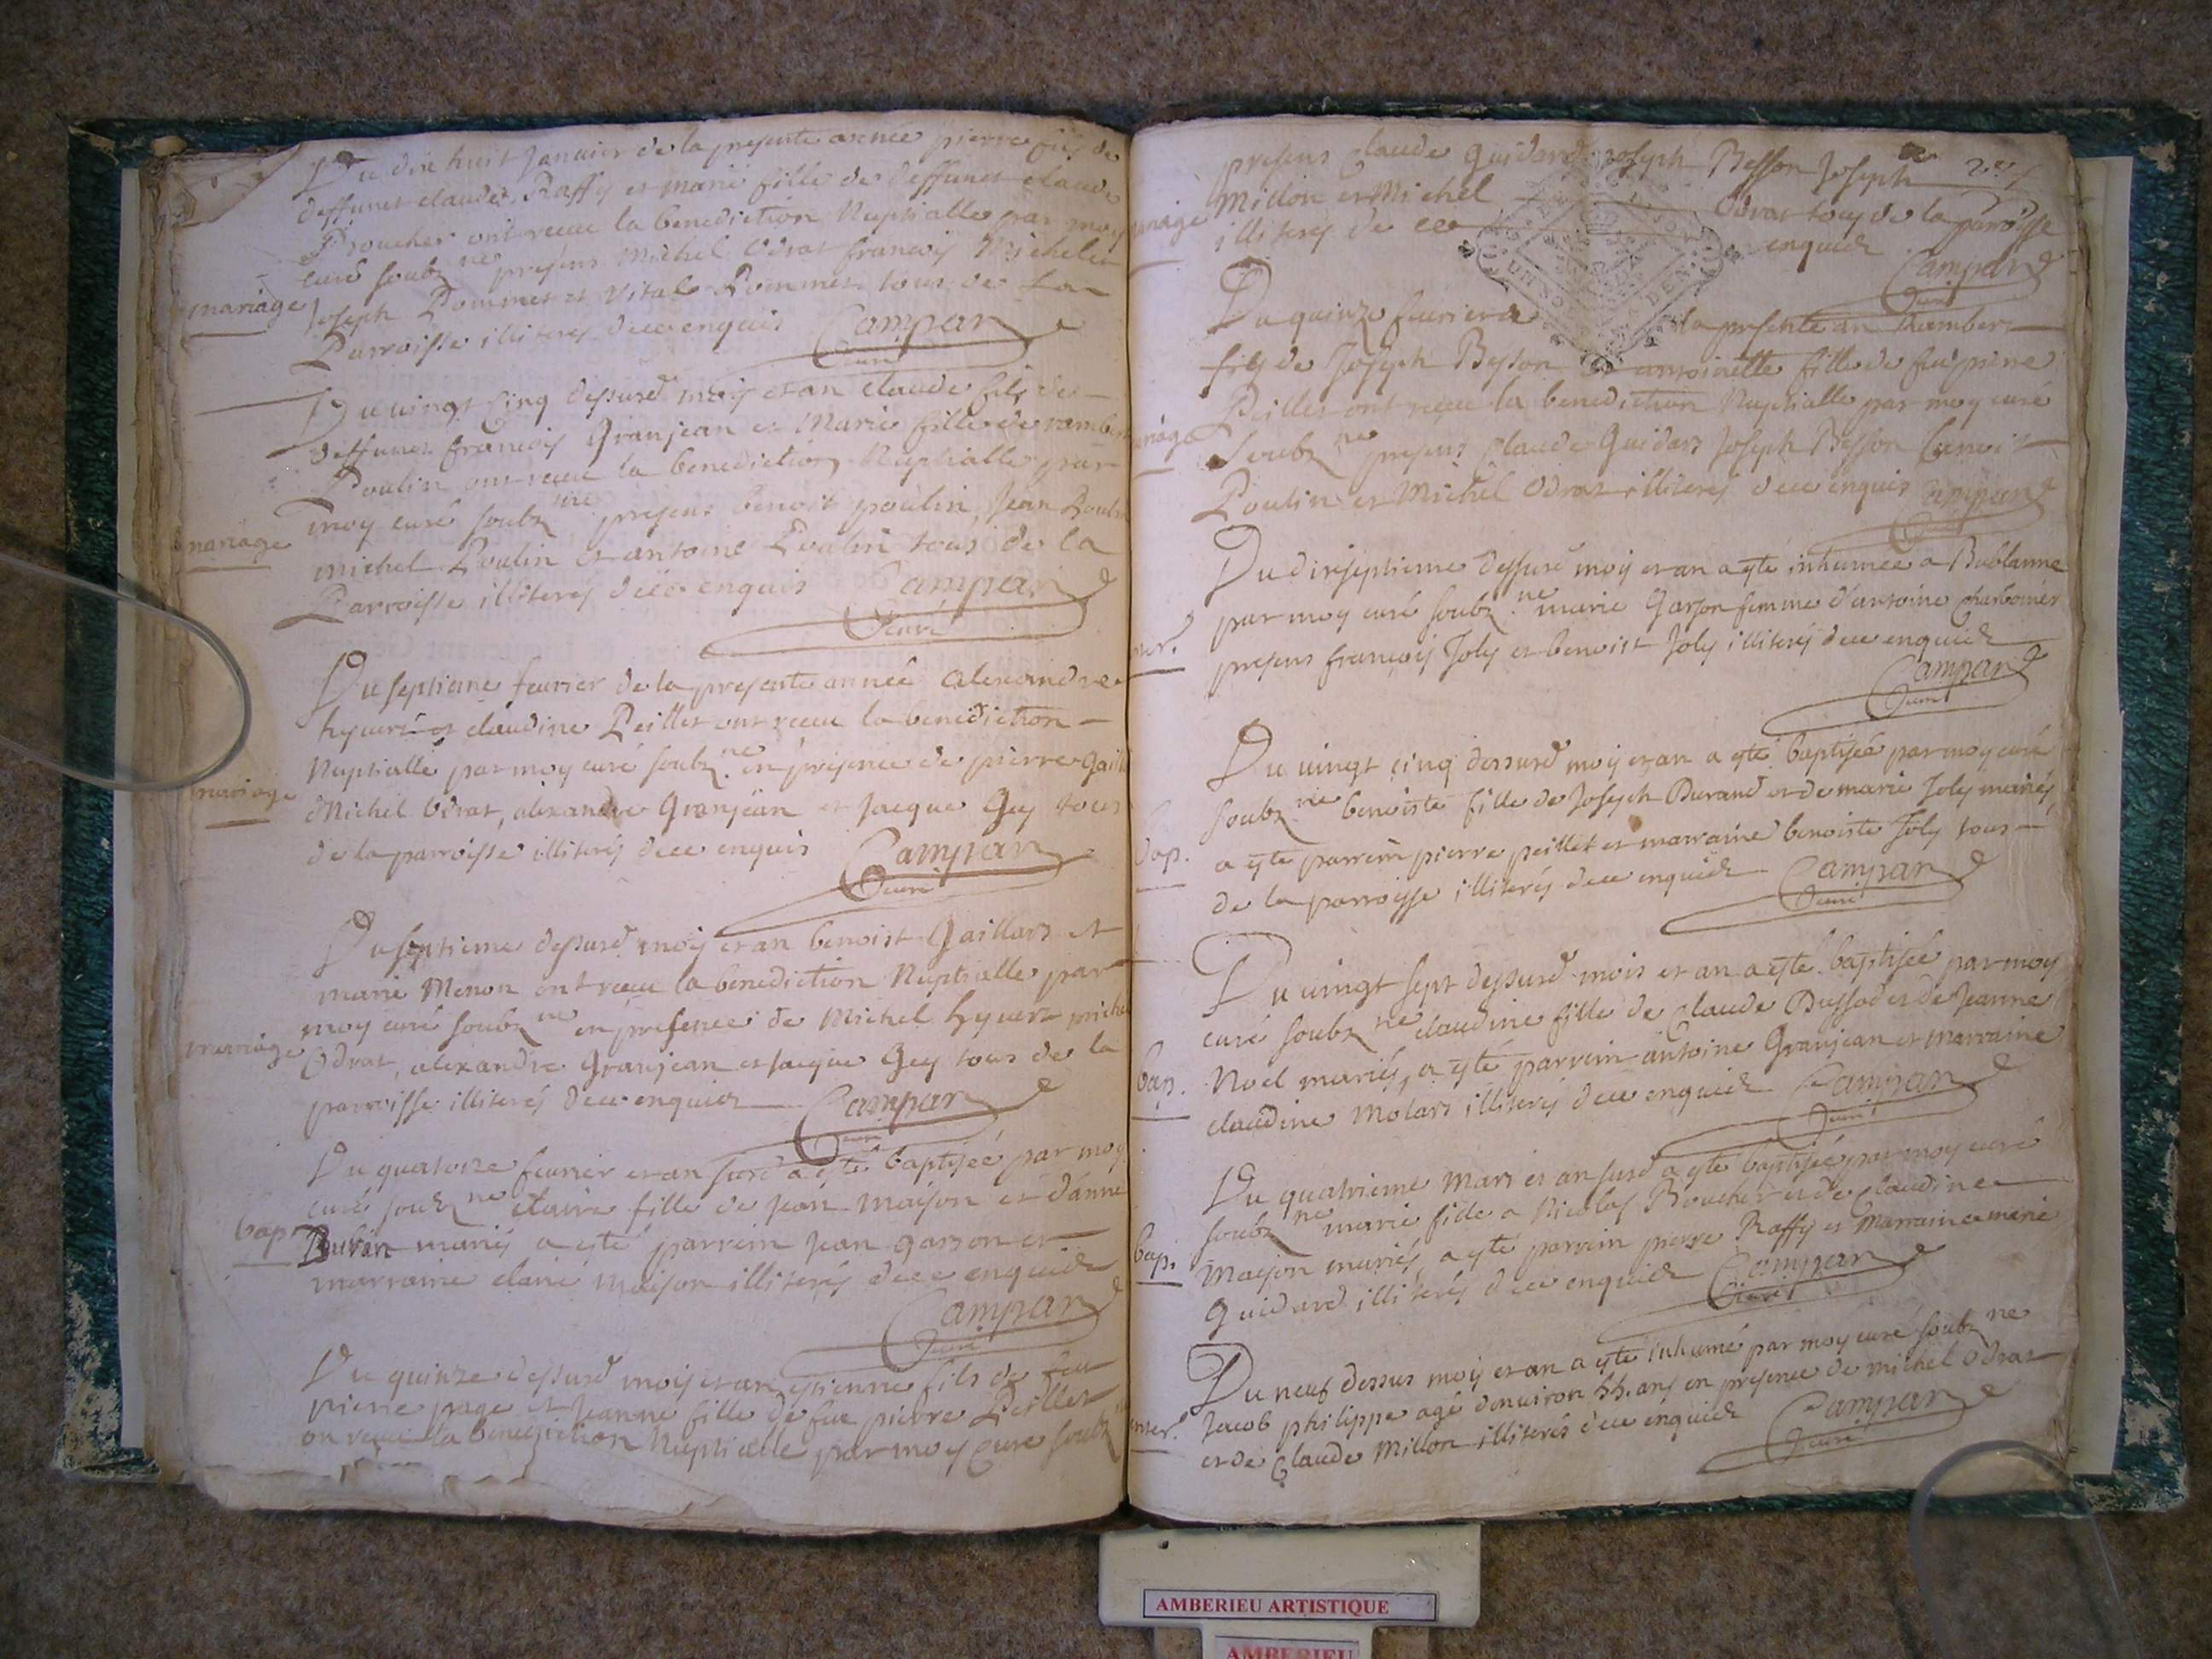 Du dix huit Janvier de la presente année pierre fils de
deffunct claude Raffy et marie fille de deffunct claude
Broucher ont receu la benediction Nuptialle par moy
curé soubz ne presens Michel Odrat francois Michelet
mariage
Joseph Pommet et Vital Pommet tous de la
Parroisse illiterés de ce enquis Campan
curé
Du vingt cinq dessusd moys et an claude fils de
deffunct francois Granjean et Marie fille de rambert
Poulin ont receu la benediction Nuptialle par
moy curé soubz ne presens benoit poulin, Jean Poulin
mariage
michel Poulin et antoine Poulin tous de la
Parroisse illiterés de ce enquis Campan
curé
Du septieme fevrier de la presente année alexandre
hyvert et claudine Peillet ont receu la benediction
Nuptialle par moy curé soubz ne en presence de pierre
mariage
Michel Odrat, alexandre Granjean et Jacque Gey tous
de la parroisse illiterés de ce enquis Campan
curé
Du septieme dessusd moys et an benoist Gaillard et
marie Menon ont receu la benediction Nuptialle par
moy curé soubz ne en presence de Michel hyvert michel
mariage
Odrat, alexandre Granjean et Jacque Gey tous de la
parroisse illiterés de ce enquier Campan
curé
Du quatorze fevrier et an susd a esté baptisée par moy
curé soubz ne claire fille de Jean Maison et d'anne
bap
mariés a esté parrein Jean garson et
marraine claire maison illiterés de ce enquier
Campan
curé
Du quinze dessusd moys et an estienne fils de feu
pierre page et Jeanne fille de feu pierre Peillet
on receu la benediction Nuptialle par moy Curé soubz
presens Claude Guidard Joseph Besson Joseph
mariage
Millon et Michel Odrat tous de la parroisse
illiterés de ce enquier
Campan
curé
Du quinze fevrier de la presente an Rambert
fils de Joseph Besson et antoinette fille de feu pierre
Peillet ont receu la benediction Nuptialle par moy curé
mariage
Soubz ne presens Claude Guidard Joseph Besson benoit
Poulin et Michel Odrat illiterés de ce enquis Campan
curé
Du dixseptieme dessusd moys et an a esté inhumée a Bublanne
par moy curé soubz ne marie Garson femme d'antoine Charbonier
enter.
presens francois Joly et benoist Joly illiterés de ce enquier
Campan
curé
Du vingt cinq dessusd moys et an a esté baptisée par moy curé
soubz ne benoiste fille de Joseph Durand et de marie Joly mariés,
bap.
a esté parrein pierre peillet et marraine benoiste Joly tous
de la parroisse illiterés de ce enquier Campan
curé
Du vingt sept dessusd mois et an a esté baptisée par moy
curé soubz ne claudine fille de Claude Dussod et de Jeanne
bap.
Noel mariés, a esté parrein antoine Granjean et marraine
claudine Molard illiterés de ce enquier Campan
curé
Du quatrieme Mars et an susd a esté baptisée par moy curé
soubz ne marie fille a Nicolas Boucher et de Claudine
bap.
Maison mariés, a esté parrein pierre Raffy et Marraine marie
Guidard illiterés de ce enquier Campan
curé
Du neuf dessus moys et an a esté inhumé par moy curé soubz ne
Jacob philippe agé d'environ 55. ans en presence de michel Odrat
enter.
et de Claude Millon illiterés de ce enquier Campan
curé
AMBERIEU ARTISTIQUE
AMBERIEU